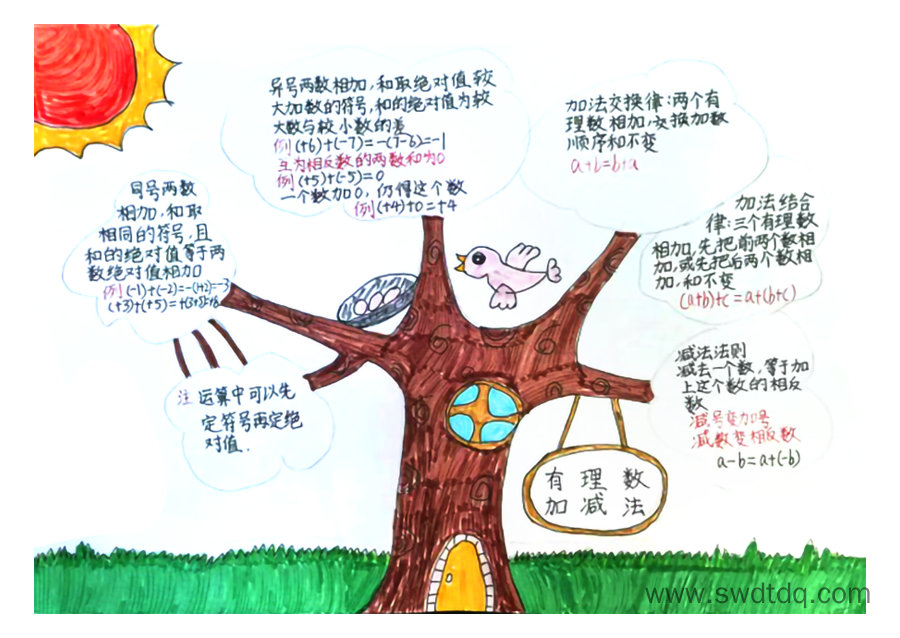 异号两数相加,和取绝对值较
大加数的符号,和的绝对值为较
大数与较小数的差
例(+6)+(-7)=-(7-6)=-1
互为相反数的两数和为0
例(+5)+(-5)=0
一个数加0,仍得这个数
例(+4)+0=+4
加法交换律:两个有
理数相加,交换加数
顺序和不变
a+b=b+a
同号两数
相加,和取
相同的符号,且
和的绝对值等于两
数绝对值相加
例(-1)+(-2)=-(1+2)=-3
(+3)+(+5)=+(3+5)=+8
加法结合
律:三个有理数
相加,先把前两个数相
加,或先把后两个数相
加,和不变
(a+b)+c=a+(b+c)
注 运算中可以先
定符号再定绝
对值.
减法法则
减去一个数,等于加
上这个数的相反
数
减号变加号
减数变相反数
a-b=a+(-b)
有理数
加减法
www.swdtdq.com